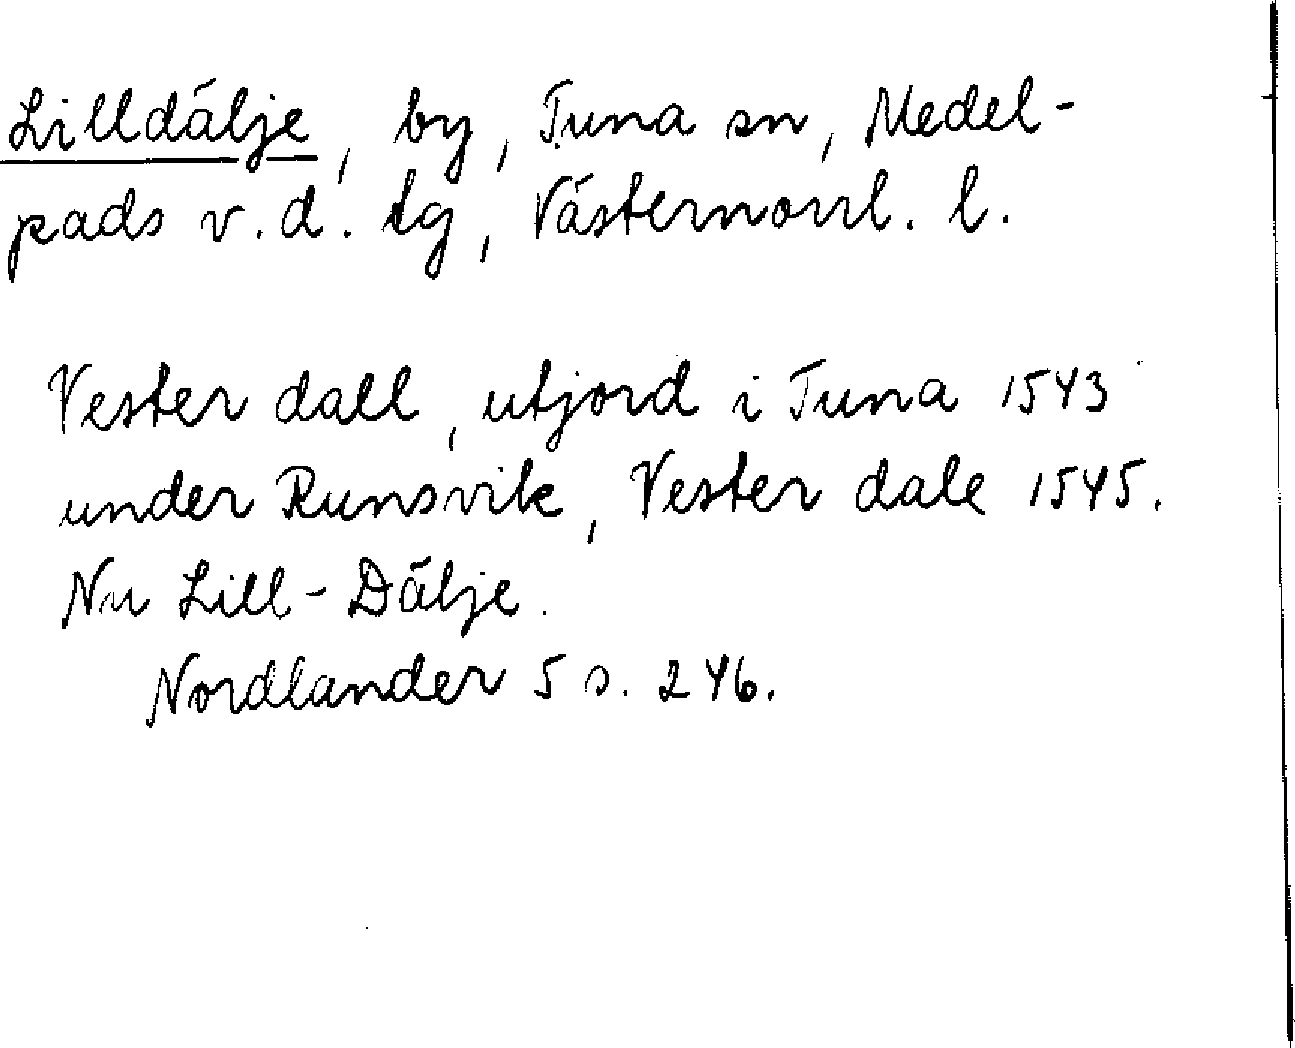 Lilldälje, by, Tuna sn, Medel-
pads v.d. tg, Västernorrl. l.
Vester dall, utjord i Tuna 1543
under Runsvik, Vester dale 1545.
Nu Lill-Dälje.
Nordlander 5 s. 246.